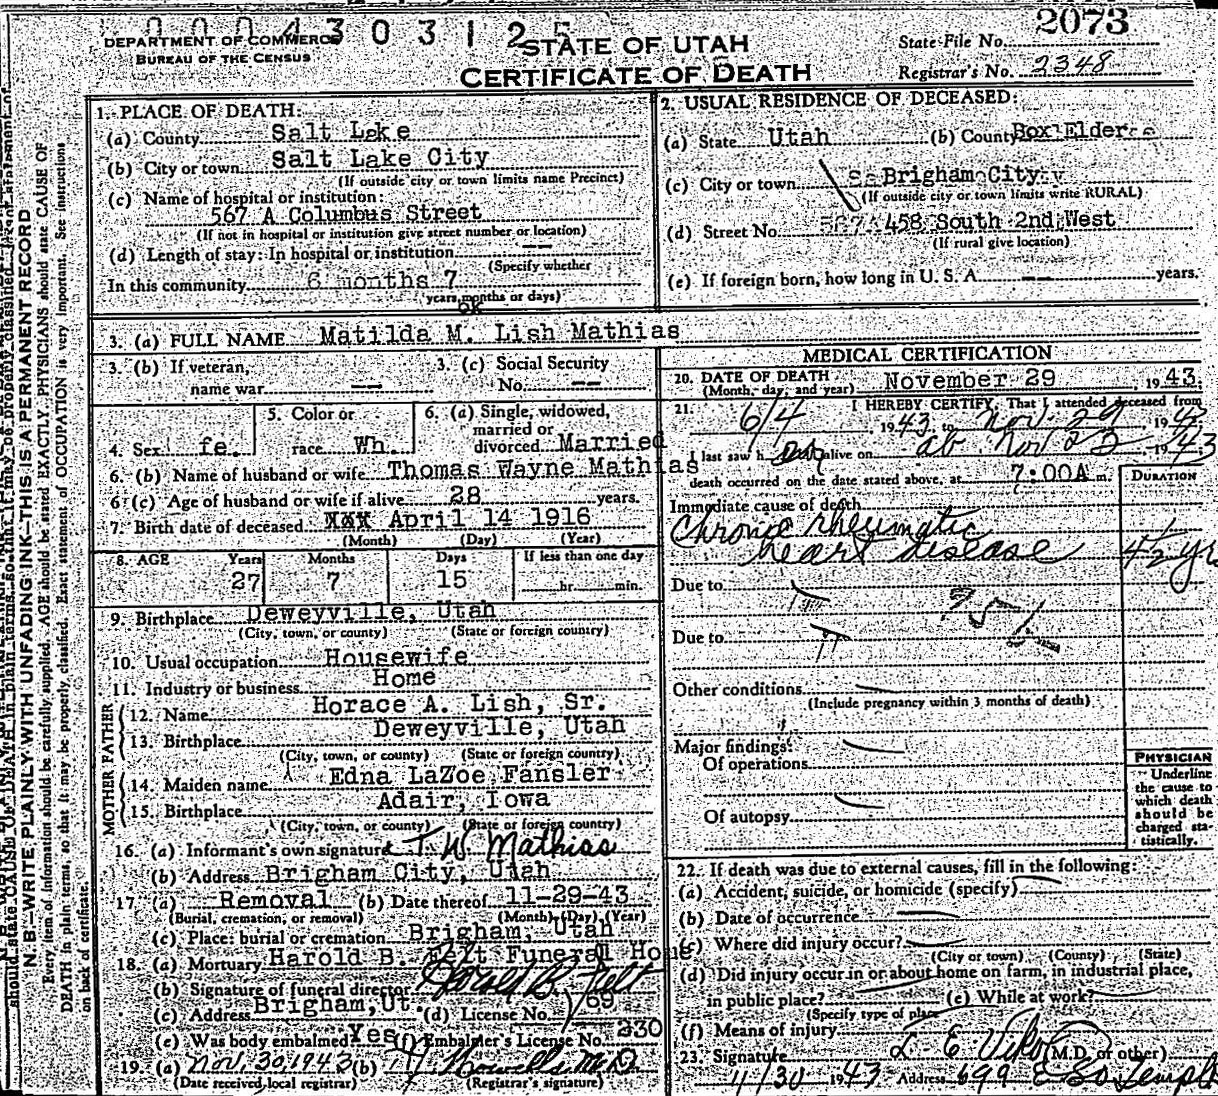 0004303125
DEPARTMENT OF COMMERCE
BUREAU OF THE CENSUS
STATE OF UTAH
CERTIFICATE OF DEATH
State File No. 2073
Registrar's No. 2348
N. B.—WRITE PLAINLY WITH UNFADING INK—THIS IS A PERMANENT RECORD
Every item of information should be carefully supplied. AGE should be stated EXACTLY. PHYSICIANS should state CAUSE OF
DEATH in plain terms, so that it may be properly classified. Exact statement of OCCUPATION is very important. See instructions
on back of certificate.
1. PLACE OF DEATH:
(a) County Salt Lake
(b) City or town Salt Lake City
(If outside city or town limits name Precinct)
(c) Name of hospital or institution:
567 A Columbus Street
(If not in hospital or institution give street number or location)
(d) Length of stay: In hospital or institution --
(Specify whether
In this community 6 months 7
years, months or days)
2. USUAL RESIDENCE OF DECEASED:
(a) State Utah (b) County Box Elder
(c) City or town Brigham City
(If outside city or town limits write RURAL)
(d) Street No. 458 South 2nd West
(If rural give location)
(e) If foreign born, how long in U. S. A. -- years.
OK
3. (a) FULL NAME Matilda M. Lish Mathias
3. (b) If veteran,
name war --
3. (c) Social Security
No. --
4. Sex fe.
5. Color or
race Wh.
6. (a) Single, widowed,
married or
divorced Married
6. (b) Name of husband or wife Thomas Wayne Mathias
6 (c) Age of husband or wife if alive 28 years.
7. Birth date of deceased XXX April 14 1916
(Month) (Day) (Year)
8. AGE Years Months Days If less than one day
27 7 15 hr. min.
9. Birthplace Deweyville, Utah
(City, town, or county) (State or foreign country)
10. Usual occupation Housewife
11. Industry or business Home
FATHER
12. Name Horace A. Lish, Sr.
13. Birthplace Deweyville, Utah
(City, town, or county) (State or foreign country)
MOTHER
14. Maiden name Edna LaZoe Fansler
15. Birthplace Adair, Iowa
(City, town, or county) (State or foreign country)
16. (a) Informant's own signature T. W. Mathias
(b) Address Brigham City, Utah
17. (a) Removal (b) Date thereof 11-29-43
(Burial, cremation, or removal) (Month) (Day) (Year)
(c) Place: burial or cremation Brigham, Utah
18. (a) Mortuary Harold B. Felt Funeral Home
(b) Signature of funeral director Harold B. Felt
(c) Address Brigham, Ut. (d) License No. 169
(e) Was body embalmed Yes (f) Embalmer's License No. 230
19. (a) Nov. 30, 1943 (b) M.D.
(Date received, local registrar) (Registrar's signature)
MEDICAL CERTIFICATION
20. DATE OF DEATH November 29, 1943.
(Month, day, and year)
21. I HEREBY CERTIFY, That I attended deceased from
6/4, 1943, to Nov. 29, 1943
I last saw her alive on ab Nov 23, 1943
death occurred on the date stated above, at 7:00A m.
DURATION
Immediate cause of death
Chronic rheumatic
heart disease 4½ yrs
Due to
Due to
Other conditions
(Include pregnancy within 3 months of death)
Major findings:
Of operations
Of autopsy
PHYSICIAN
Underline
the cause to
which death
should be
charged sta-
tistically.
22. If death was due to external causes, fill in the following:
(a) Accident, suicide, or homicide (specify)
(b) Date of occurrence
(c) Where did injury occur?
(City or town) (County) (State)
(d) Did injury occur in or about home on farm, in industrial place,
in public place? (e) While at work?
(Specify type of place)
(f) Means of injury
23. Signature L. E. Viko (M.D. or other)
11/30 1943 Address 699 E So Temple